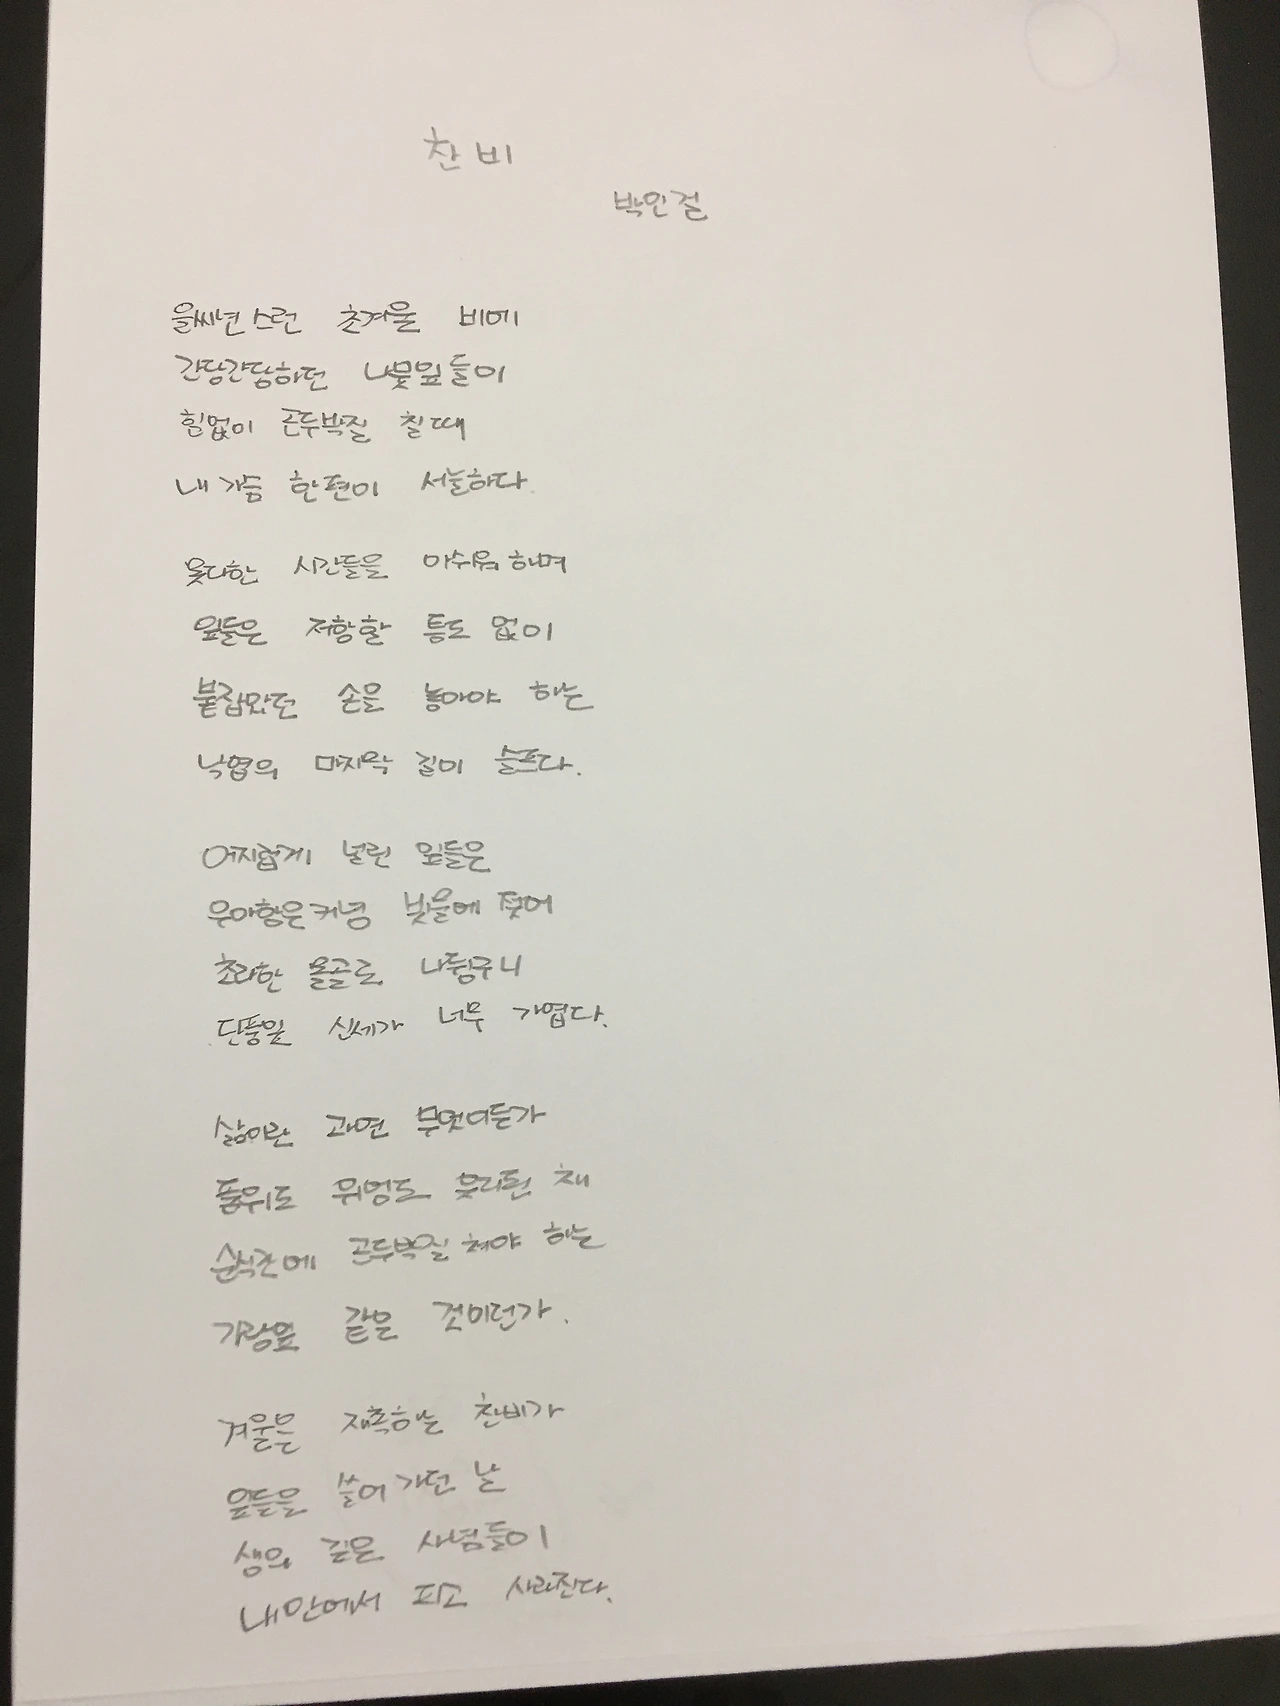 찬비
박인걸
을씨년스런 초겨울 비에
간당간당하던 나뭇잎들이
힘없이 곤두박질 칠때
내 가슴 한편이 서늘하다.
못다한 시간들을 아쉬워하며
잎들은 저항할 틈도 없이
붙잡았던 손을 놓아야 하는
낙엽의 마지막 길이 슬프다.
어지럽게 널린 잎들은
우아함은커녕 빗물에 젖어
초라한 몰골로 나뒹구니
단풍잎 신세가 너무 가엽다.
삶이란 과연 무엇이든가
품위도 위엄도 분리된 채
순식간에 곤두박질 쳐야 하는
가랑잎 같은 것이던가.
겨울을 재촉하는 찬비가
잎들을 쓸어 가던 날
생의 깊은 사념들이
내안에서 피고 사라진다.